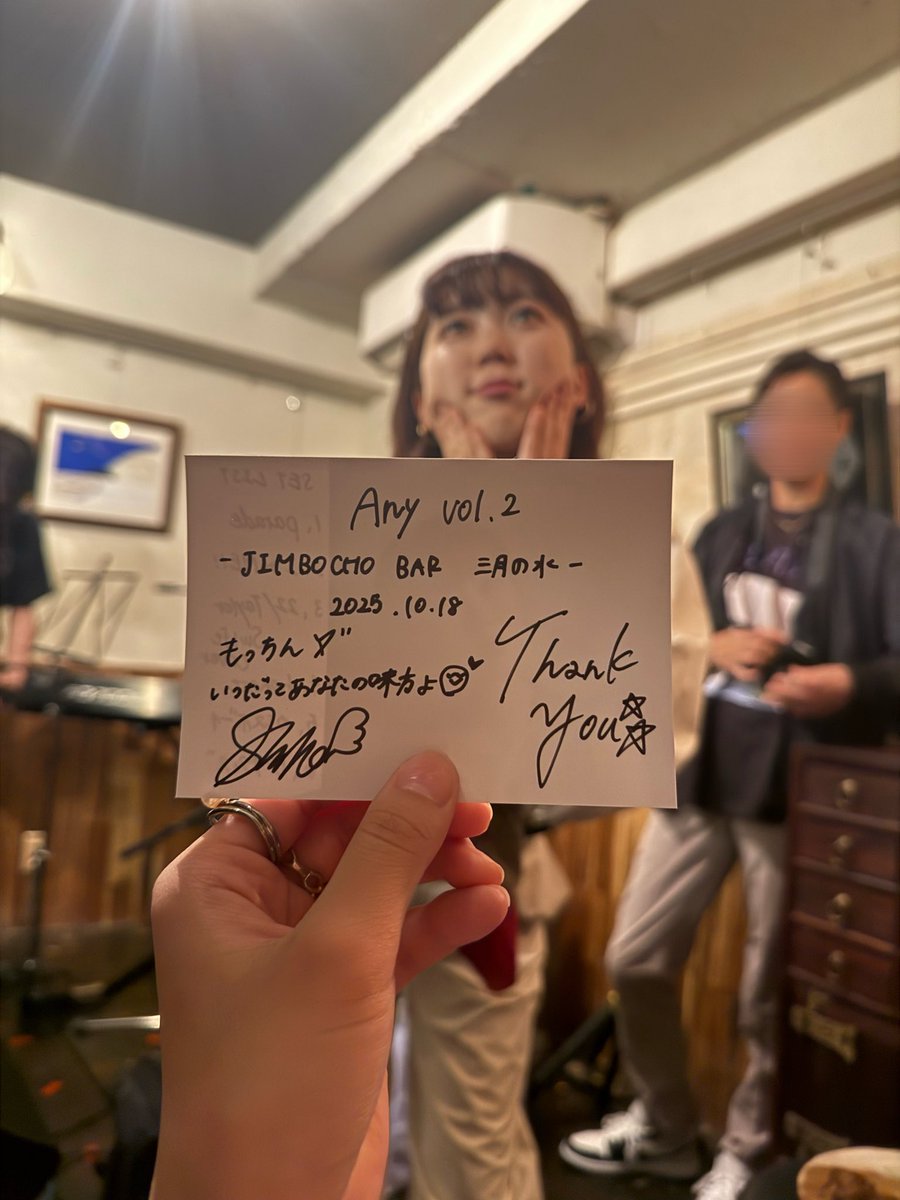 Any vol.2
- JIMBOCHO BAR 三月の水 -
2025.10.18
もっちん〆"
いつだってあなたの味方よ
Thank
You
SET LIST
1. parade